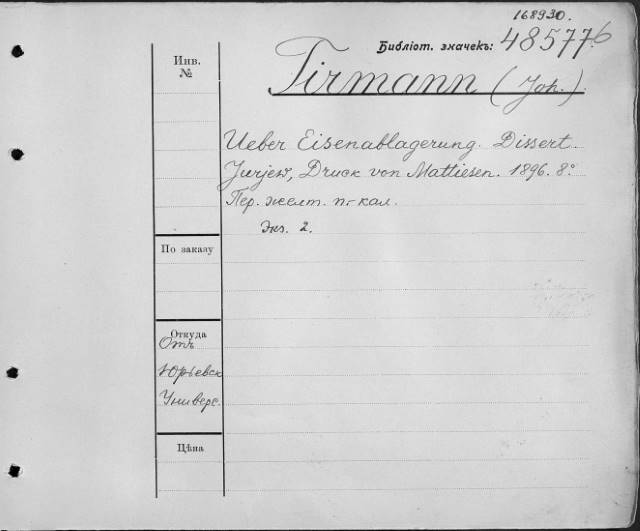 168930.
Библіот. значекъ: 48577б
Инв.
№
Tirmann (Joh.)
Ueber Eisenablagerung. Dissert.
Jurjew, Druck von Mattiesen. 1896. 8°.
Пер. желт. п-кал.
Экз. 2.
По заказу
Откуда
Отъ
Юрьевск
Универс.
Цѣна